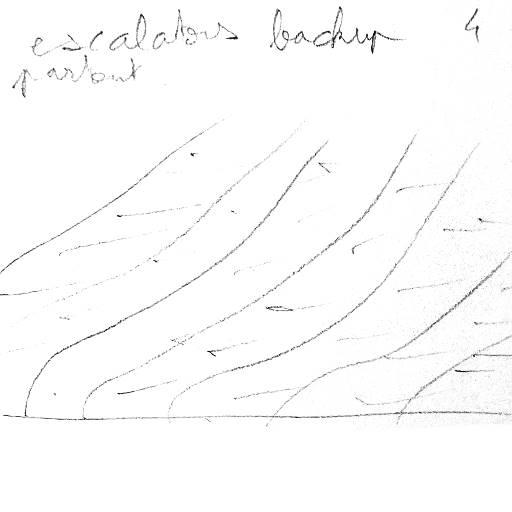 escalators backup 4
partout